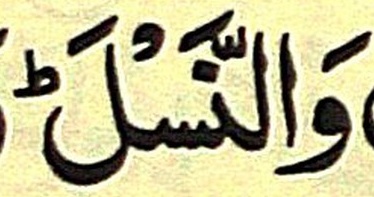 وَالنَّسْلَ ؕ